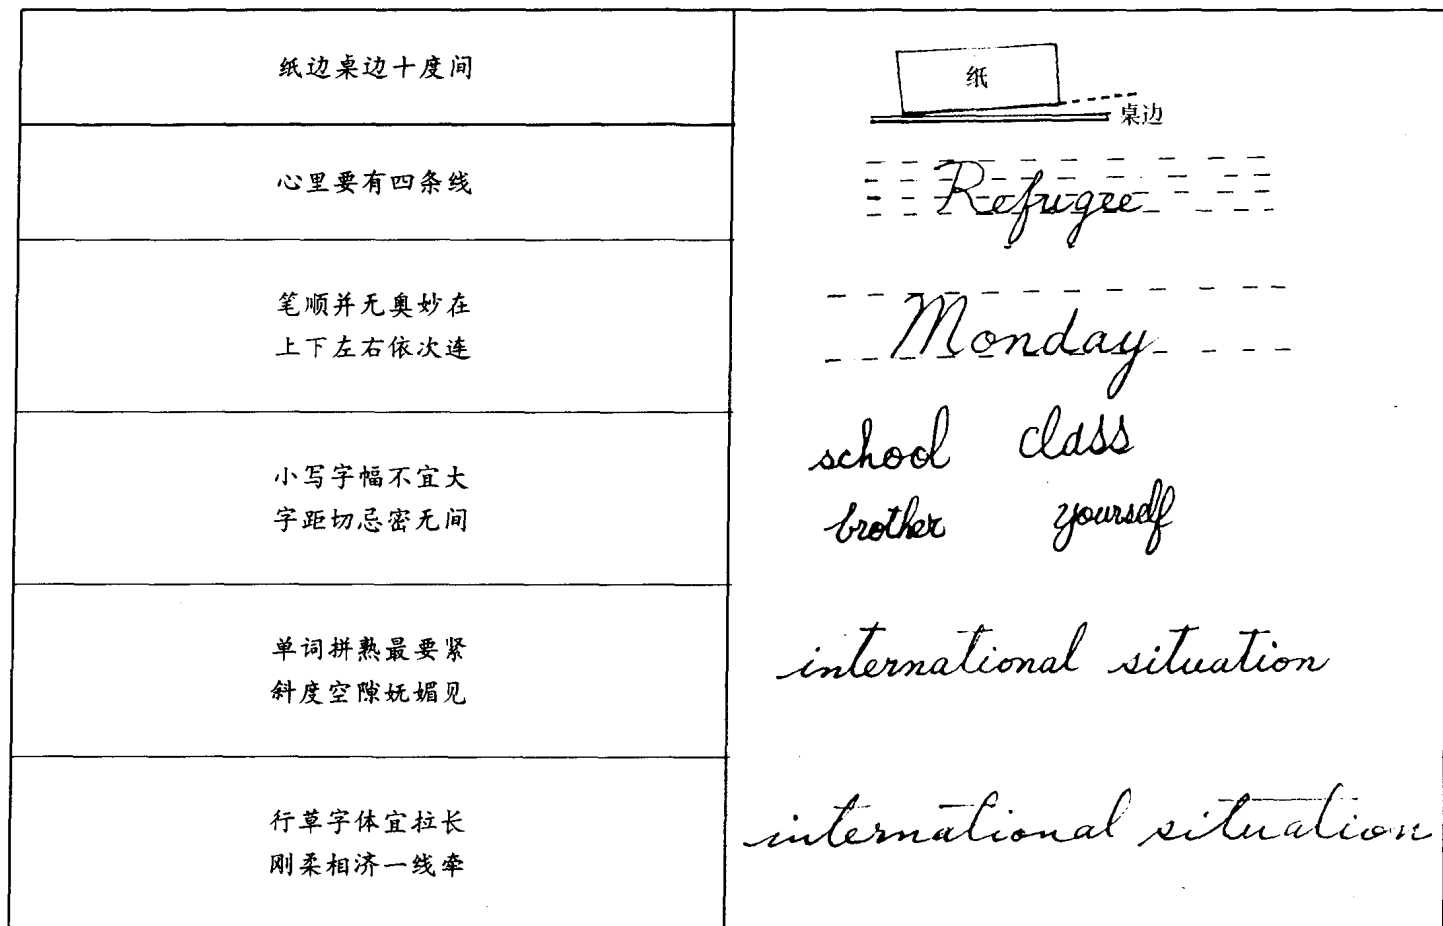 纸边桌边十度间
纸
桌边
心里要有四条线
Refugee
笔顺并无奥妙在
上下左右依次连
Monday
小写字幅不宜大
字距切忌密无间
school class
brother yourself
单词拼熟最要紧
斜度空隙妩媚见
international situation
行草字体宜拉长
刚柔相济一线牵
international situation